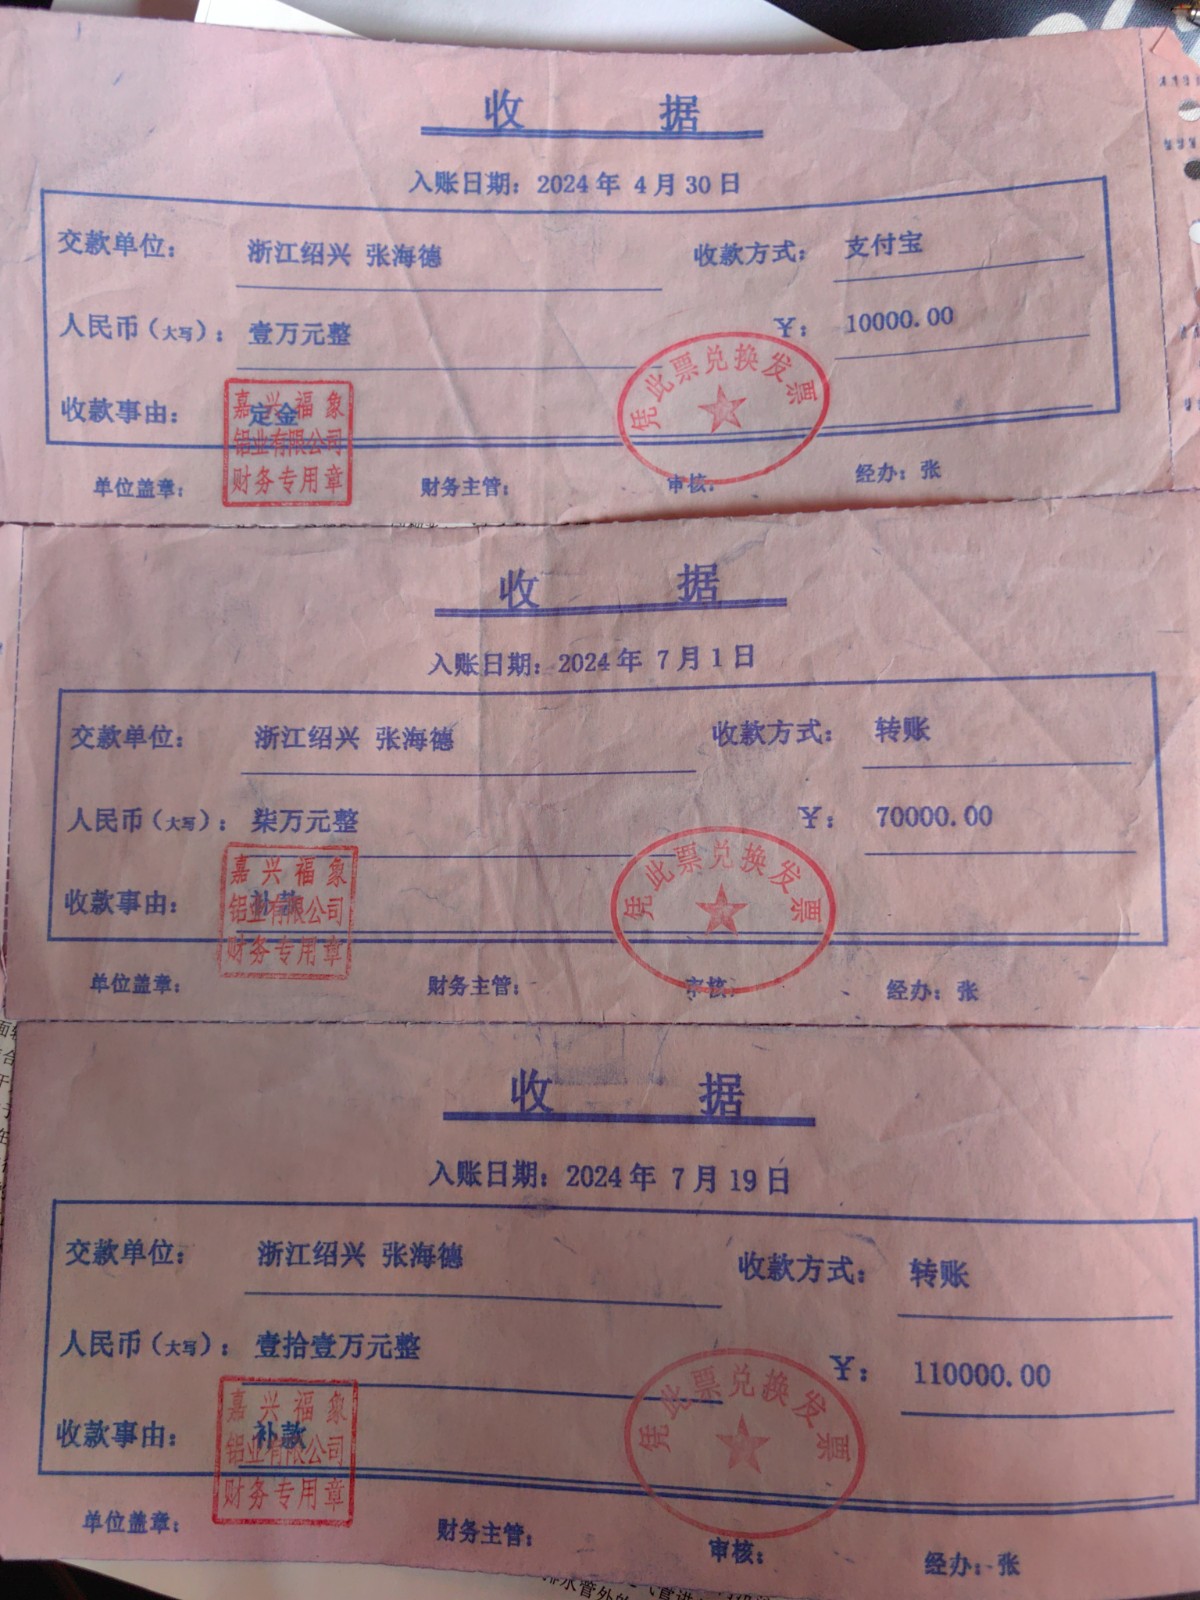 收 据
入账日期：2024年 4月30日
交款单位： 浙江绍兴 张海德 收款方式： 支付宝
人民币（大写）： 壹万元整 ￥： 10000.00
收款事由： 定金
嘉兴福象
铝业有限公司
财务专用章
凭此票兑换发票
单位盖章： 财务主管： 审核： 经办：张
收 据
入账日期：2024年 7月1日
交款单位： 浙江绍兴 张海德 收款方式： 转账
人民币（大写）： 柒万元整 ￥： 70000.00
收款事由： 补款
嘉兴福象
铝业有限公司
财务专用章
凭此票兑换发票
单位盖章： 财务主管： 审核： 经办：张
收 据
入账日期：2024年 7月19日
交款单位： 浙江绍兴 张海德 收款方式： 转账
人民币（大写）： 壹拾壹万元整 ￥： 110000.00
收款事由： 补款
嘉兴福象
铝业有限公司
财务专用章
凭此票兑换发票
单位盖章： 财务主管： 审核： 经办：张